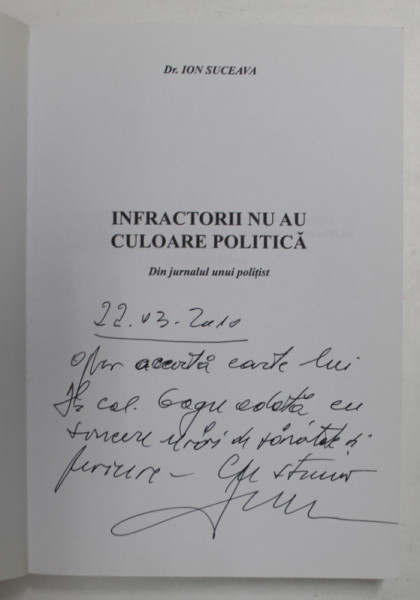 Dr. ION SUCEAVA
INFRACTORII NU AU
CULOARE POLITICĂ
Din jurnalul unui polițist
22.03.2010
ofer această carte lui
col. odată cu
sincere urări de sănătate și
fericire – Cu stimă